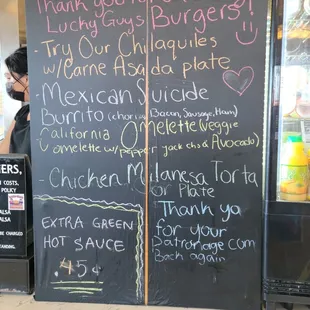 Thank you
Lucky Guys Burgers!
- Try Our Chilaquiles
w/Carne Asada plate
- Mexican Suicide
Burrito (chorizo, Bacon, Sausage, Ham)
California Omelette (veggie
omelette w/pepper jack chs & Avocado)
- Chicken Milanesa Torta
or Plate
EXTRA GREEN
HOT SAUCE
.45¢
Thank ya
for your
Patronage Com
Back again
ERS,
COSTS.
POLICY
SALSA
SALSA
BE CHARGED
STANDING